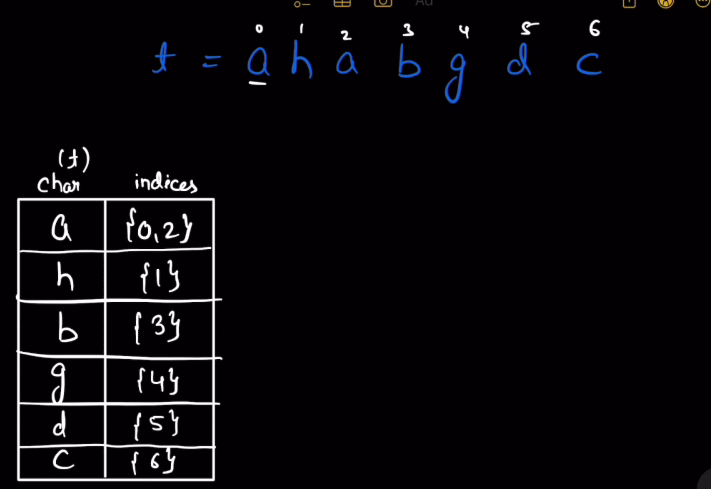 Aa
0 1 2 3 4 5 6
t = a h a b g d c
(t)
char indices
a {0,2}
h {1}
b {3}
g {4}
d {5}
c {6}